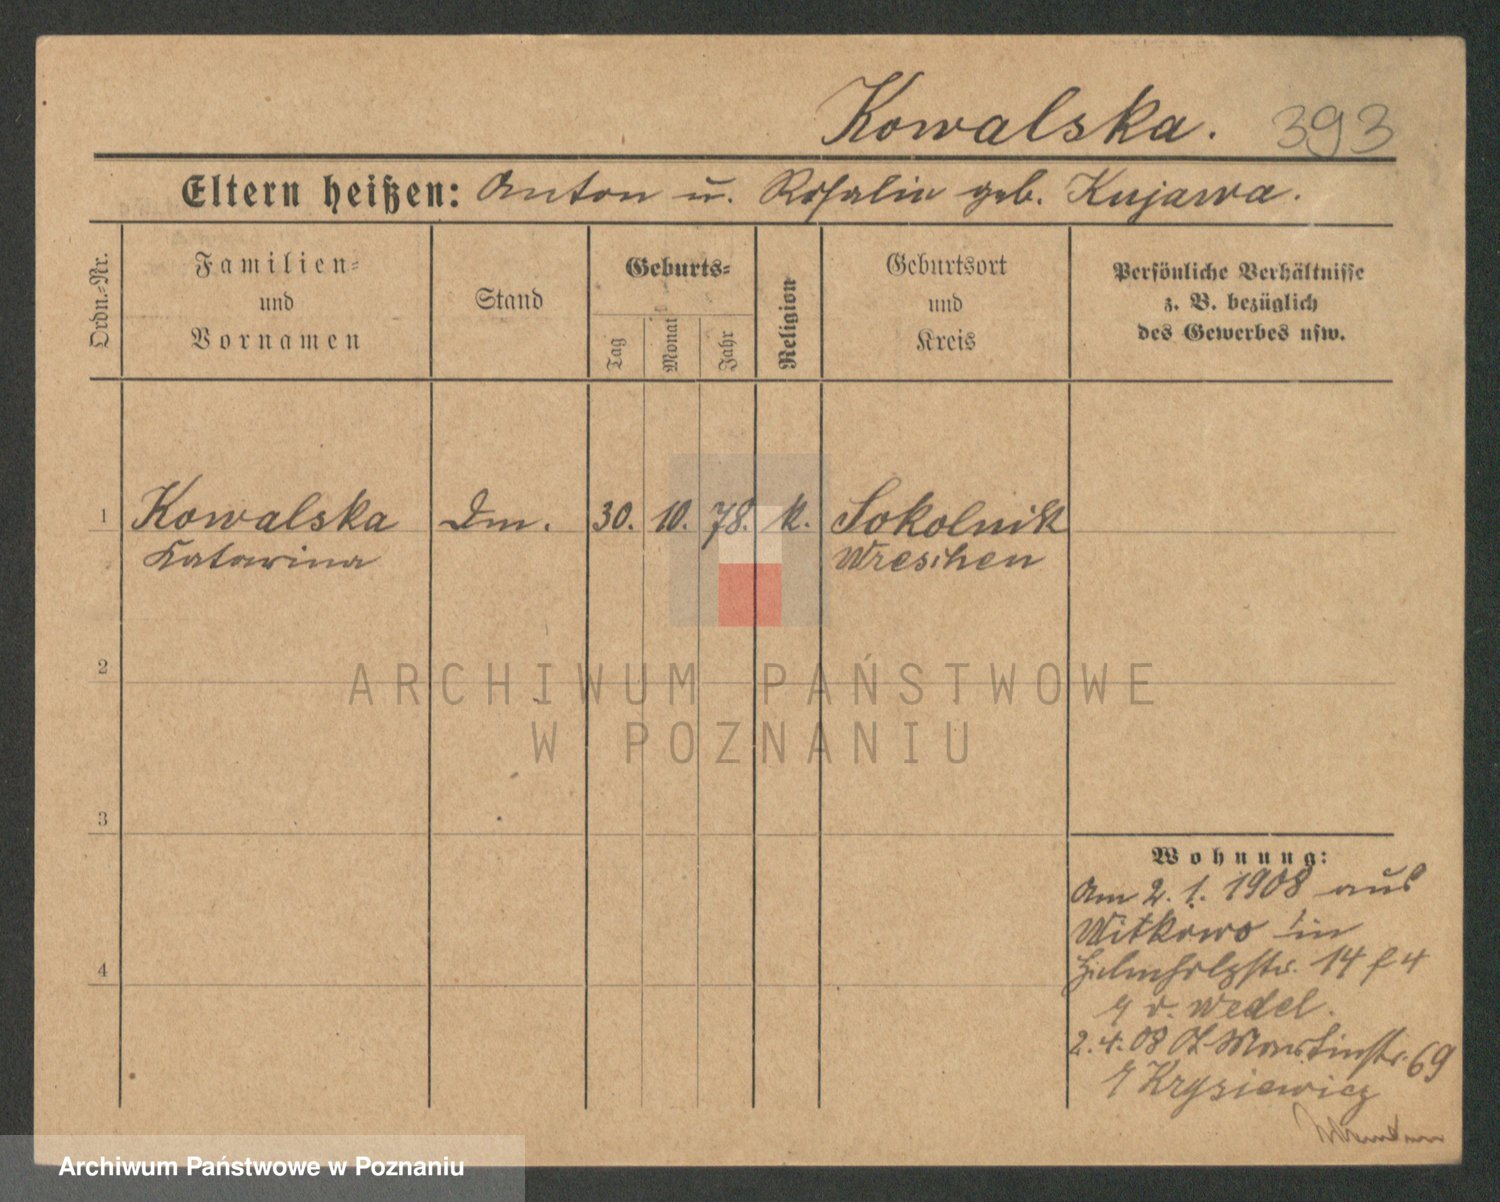 Kowalska. 393
Eltern heißen: Anton u. Rosalie geb. Kujawa.
Ordn.-Nr.
Familien-
und
Vornamen
Stand
Geburts-
Tag
Monat
Jahr
Religion
Geburtsort
und
Kreis
Persönliche Verhältnisse
z. B. bezüglich
des Gewerbes usw.
1 Kowalska Dm. 30. 10. 78. k. Sokolnik
Katarina Wreschen
2
ARCHIWUM PAŃSTWOWE
W POZNANIU
3
Wohnung:
Am 2. 1. 1908 aus
Witkowo in
4
14
v. Wedel.
2. 4. 08 Martinstr. 69
Krysiewicz
Archiwum Państwowe w Poznaniu